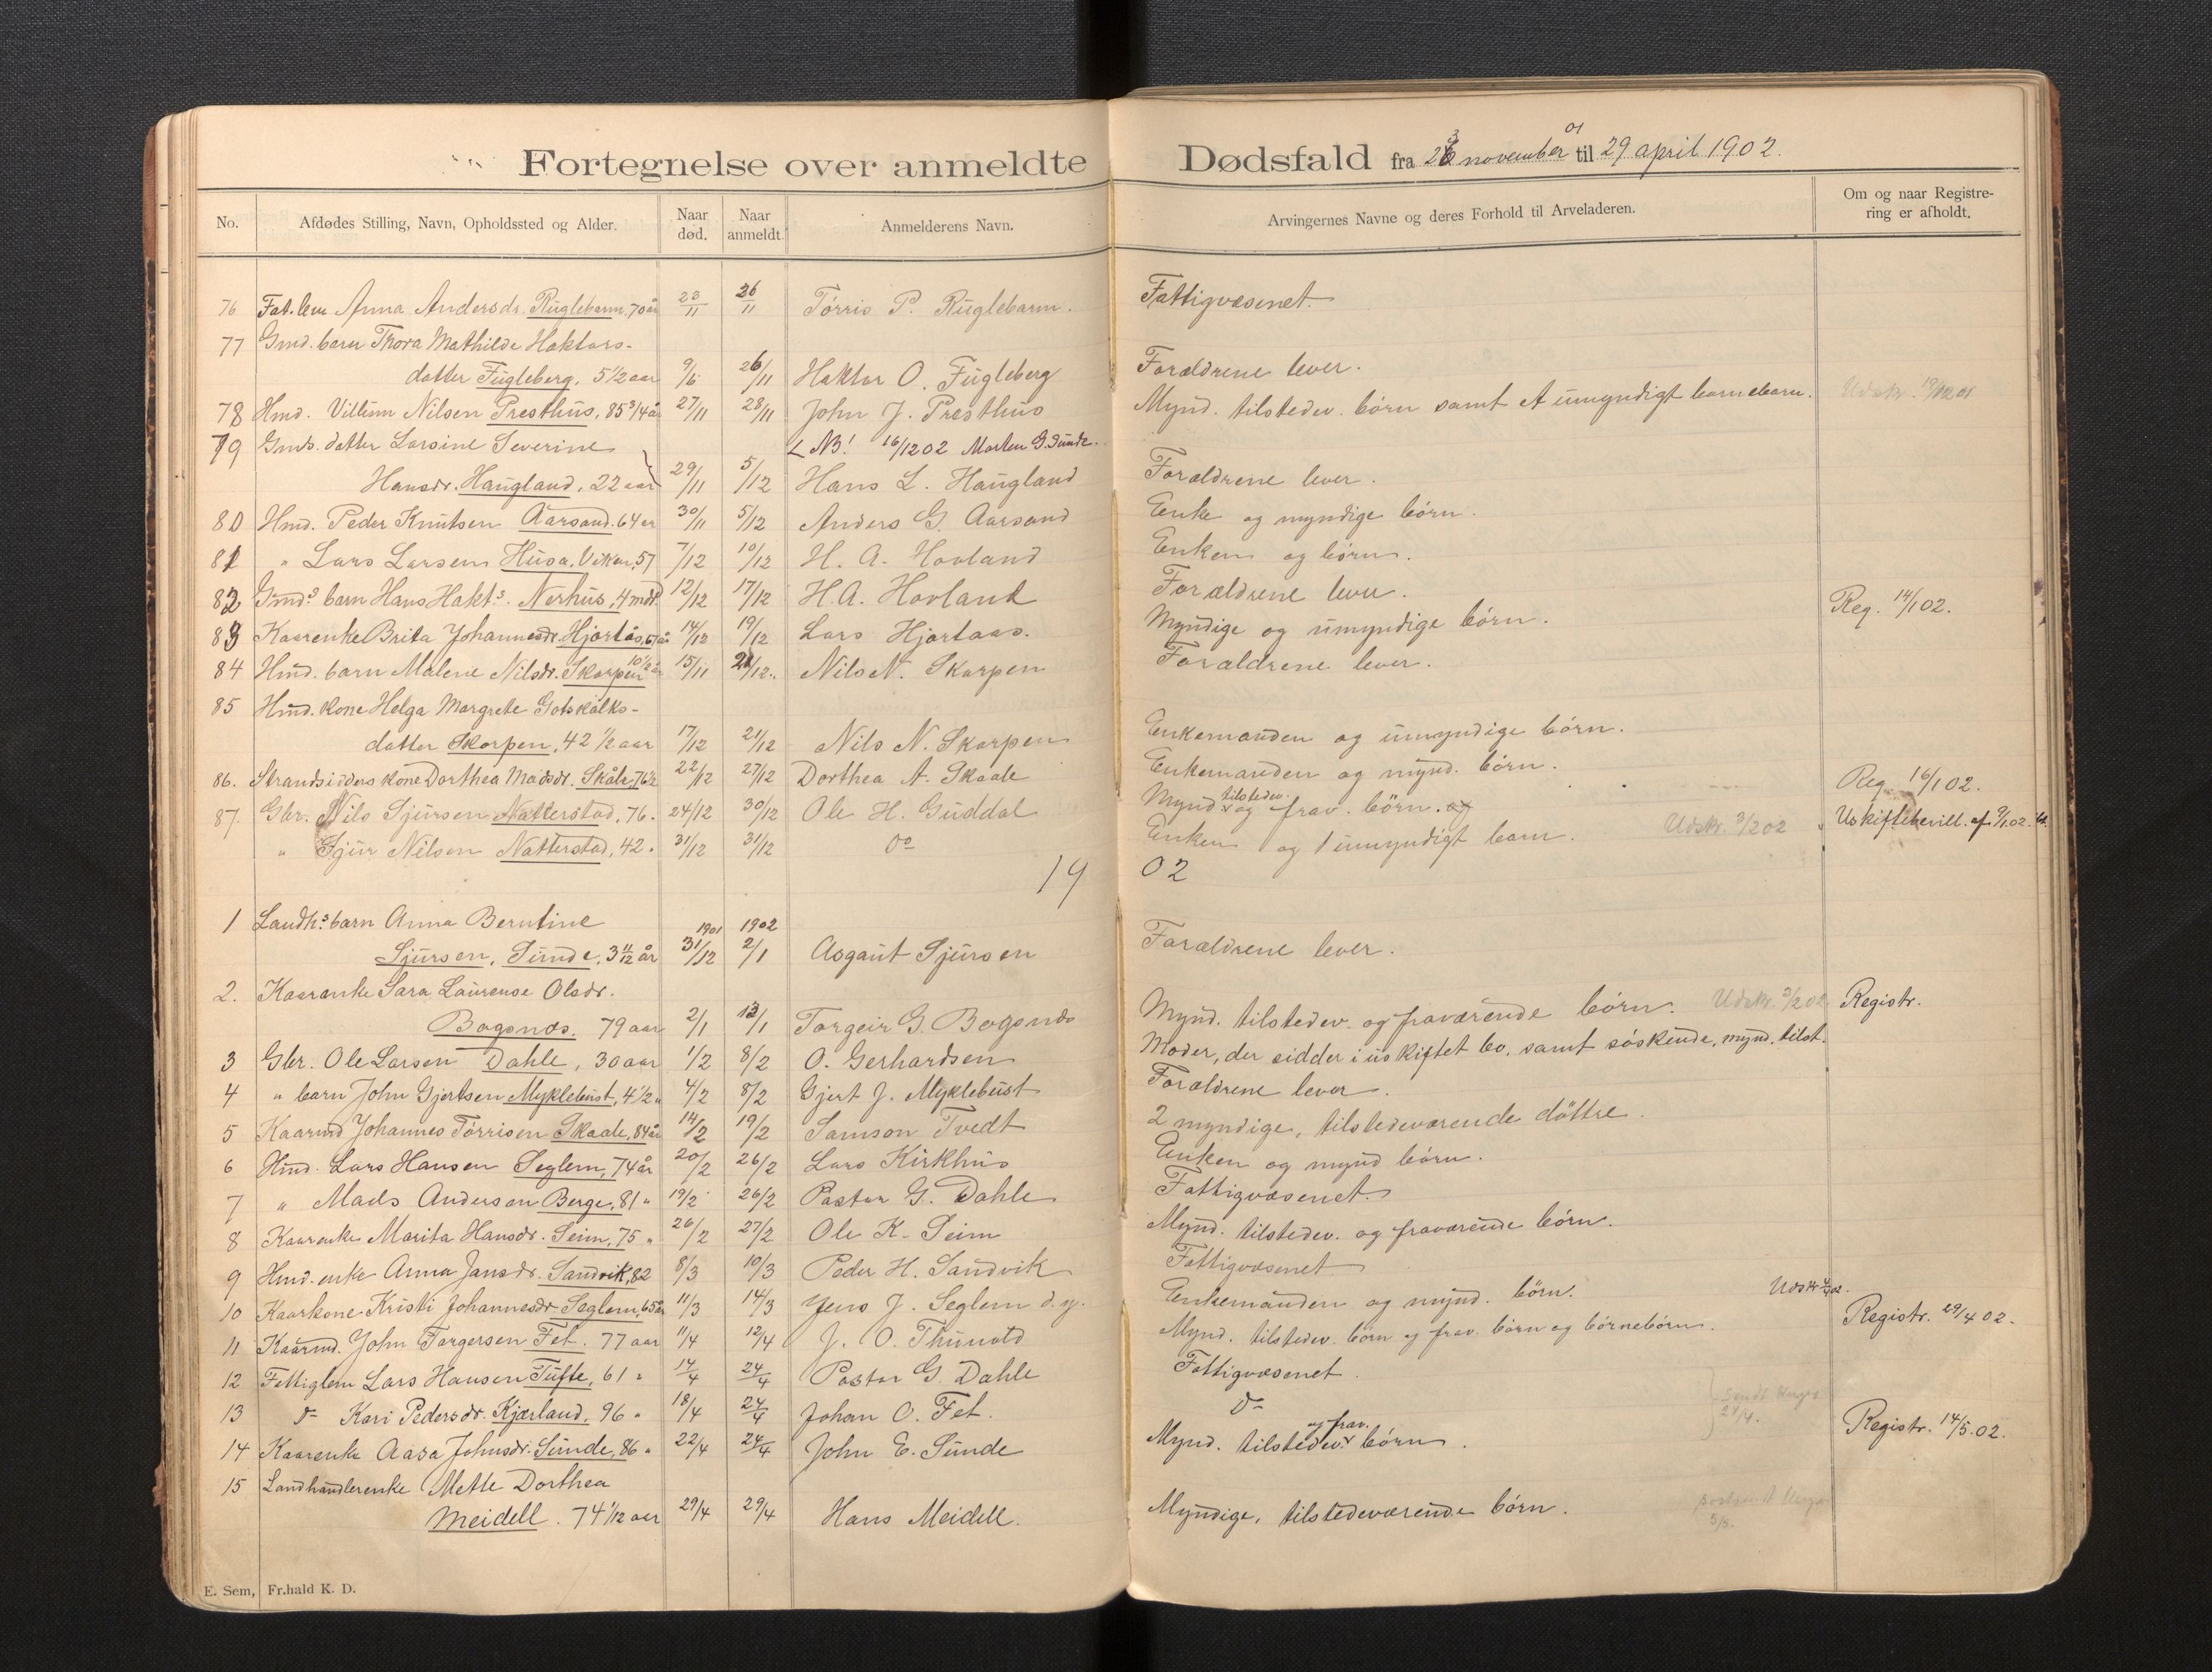 Fortegnelse over anmeldte Dødsfald fra 23 november 01 til 29 april 1902.
No. Afdødes Stilling, Navn, Opholdssted og Alder. Naar død. Naar anmeldt. Anmelderens Navn. Arvingernes Navne og deres Forhold til Arveladeren. Om og naar Registrering er afholdt.
76 Fat.lem Anna Andersdr. Ruglebarm, 70 år 23/11 26/11 Tørris P. Ruglebarm. Fattigvæsenet.
77 Gmd. barn Thora Mathilde Haktors-
datter Fugleberg, 5 1/2 aar 9/6 26/11 Haktor O. Fugleberg Forældrene lever.
78 Hmd. Villum Nilsen Presthus, 85 3/4 år 27/11 28/11 John J. Presthus Mynd. tilstedev. børn samt et umyndigt barnebarn. Udskr.
79 Gmds. datter Larsine Severine NB! 16/12 02 Morten G. Sunde.
Hansdr. Haugland, 22 aar 29/11 5/12 Hans L. Haugland Forældrene lever.
80 Hmd. Peder Knutsen Aarsand. 64 år 30/11 5/12 Anders G. Aarsand Enke og myndige børn.
81 " Lars Larsen Husa, Viken, 57 7/12 10/12 H. A. Hovland Enken og børn.
82 Gmds barn Hans Hakts. Nerhus, 4 mdr. 12/12 17/12 H.A. Hovland Forældrene lever. Reg. 14/1 02.
83 Kaarenke Brita Johannesdr. Hjortås, 67 år 14/12 19/12 Lars Hjortaas. Myndige og umyndige børn.
84 Hmd. barn Malene Nilsdr. Skorpen 10 1/2 år 15/11 21/12. Nils N. Skorpen Forældrene lever.
85 Hmd. kone Helga Margrete Gotskalks-
datter Skorpen, 42 1/2 aar 17/12 21/12 Nils N. Skorpen Enkemanden og umyndige børn.
86. Strandsidders kone Dorthea Madsdr. Skåle, 76 1/2 22/12 27/12 Dorthea A. Skaale Enkemanden og mynd. børn. Reg. 16/1 02.
87. Gbr. Nils Sjursen Natterstad, 76. 24/12 30/12 Ole H. Guddal Mynd. tilstedev. og frav. børn. og Uskiftebevill. af 9/1.02.
" Sjur Nilsen Natterstad, 42. 31/12 31/12 do Enken og 1 umyndigt barn. Udskr. 3/2 02
1902
1 Landhs barn Anna Berntine 1901 1902
Sjursen, Sunde, 3 11/12 år 31/12 2/1 Asgaut Sjursen Forældrene lever.
2. Kaarenke Sara Laurense Olsdr.
Bogsnes. 79 aar 2/1 13/1 Torgeir G. Bogsnes Mynd. tilstedev. og fraværende børn. Udskr. 3/2 02 Registr.
3 Gbr. Ole Larsen Dahle, 30 aar 1/2 8/2 O. Gerhardsen Moder, der sidder i uskiftet bo, samt søskende, mynd. tilst.
4 " barn John Gjertsen Myklebust, 4 1/2 " 4/2 8/2 Gjert J. Myklebust Forældrene lever.
5 Kaarmd Johannes Tørrisen Skaale, 84 år 14/2 19/2 Samson Tvedt 2 myndige, tilstedeværende døttre.
6 Hmd. Lars Hansen Seglem, 74 år 20/2 26/2 Lars Kirkhus Enken og mynd børn.
7 " Mads Andersen Berge, 81 " 19/2 26/2 Pastor G. Dahle Fattigvæsenet.
8 Kaarenke Marita Hansdr. Seim, 75 " 26/2 27/2 Ole K. Seim Mynd. tilstedev. og fraværende børn.
9 Hmd. enke Anna Jansdr. Sandvik, 82 8/3 10/3 Peder H. Sandvik Fattigvæsenet
10 Kaarkone Kristi Johannesdr Seglem, 65 år 11/3 14/3 Jens J. Seglem d.y. Enkemanden og mynd. børn. Udskr
11 Kaarmd. John Torgersen Fet. 77 aar 11/4 12/4 J. O. Thunold Mynd. tilstedev. børn og frav. børn og børnebørn. Registr. 29/4 02.
12 Fattiglem Lars Hansen Tufte, 61 " 14/4 24/4 Pastor G. Dahle Fattigvæsenet.
13 do Kari Pedersdr. Kjærland, 96 " 18/4 24/4 Johan O. Fet. do Sendt 29/4.
14 Kaarenke Aasa Johnsdr. Sunde, 86 " 22/4 24/4 John E. Sunde Mynd. tilstedev. og frav. børn. Registr. 14/5.02.
15 Landhandlerenke Mette Dorthea
Meidell. 74 1/12 aar 29/4 29/4 Hans Meidell. Myndige, tilstedeværende børn. 5/5.
E. Sem, Fr.hald K. D.